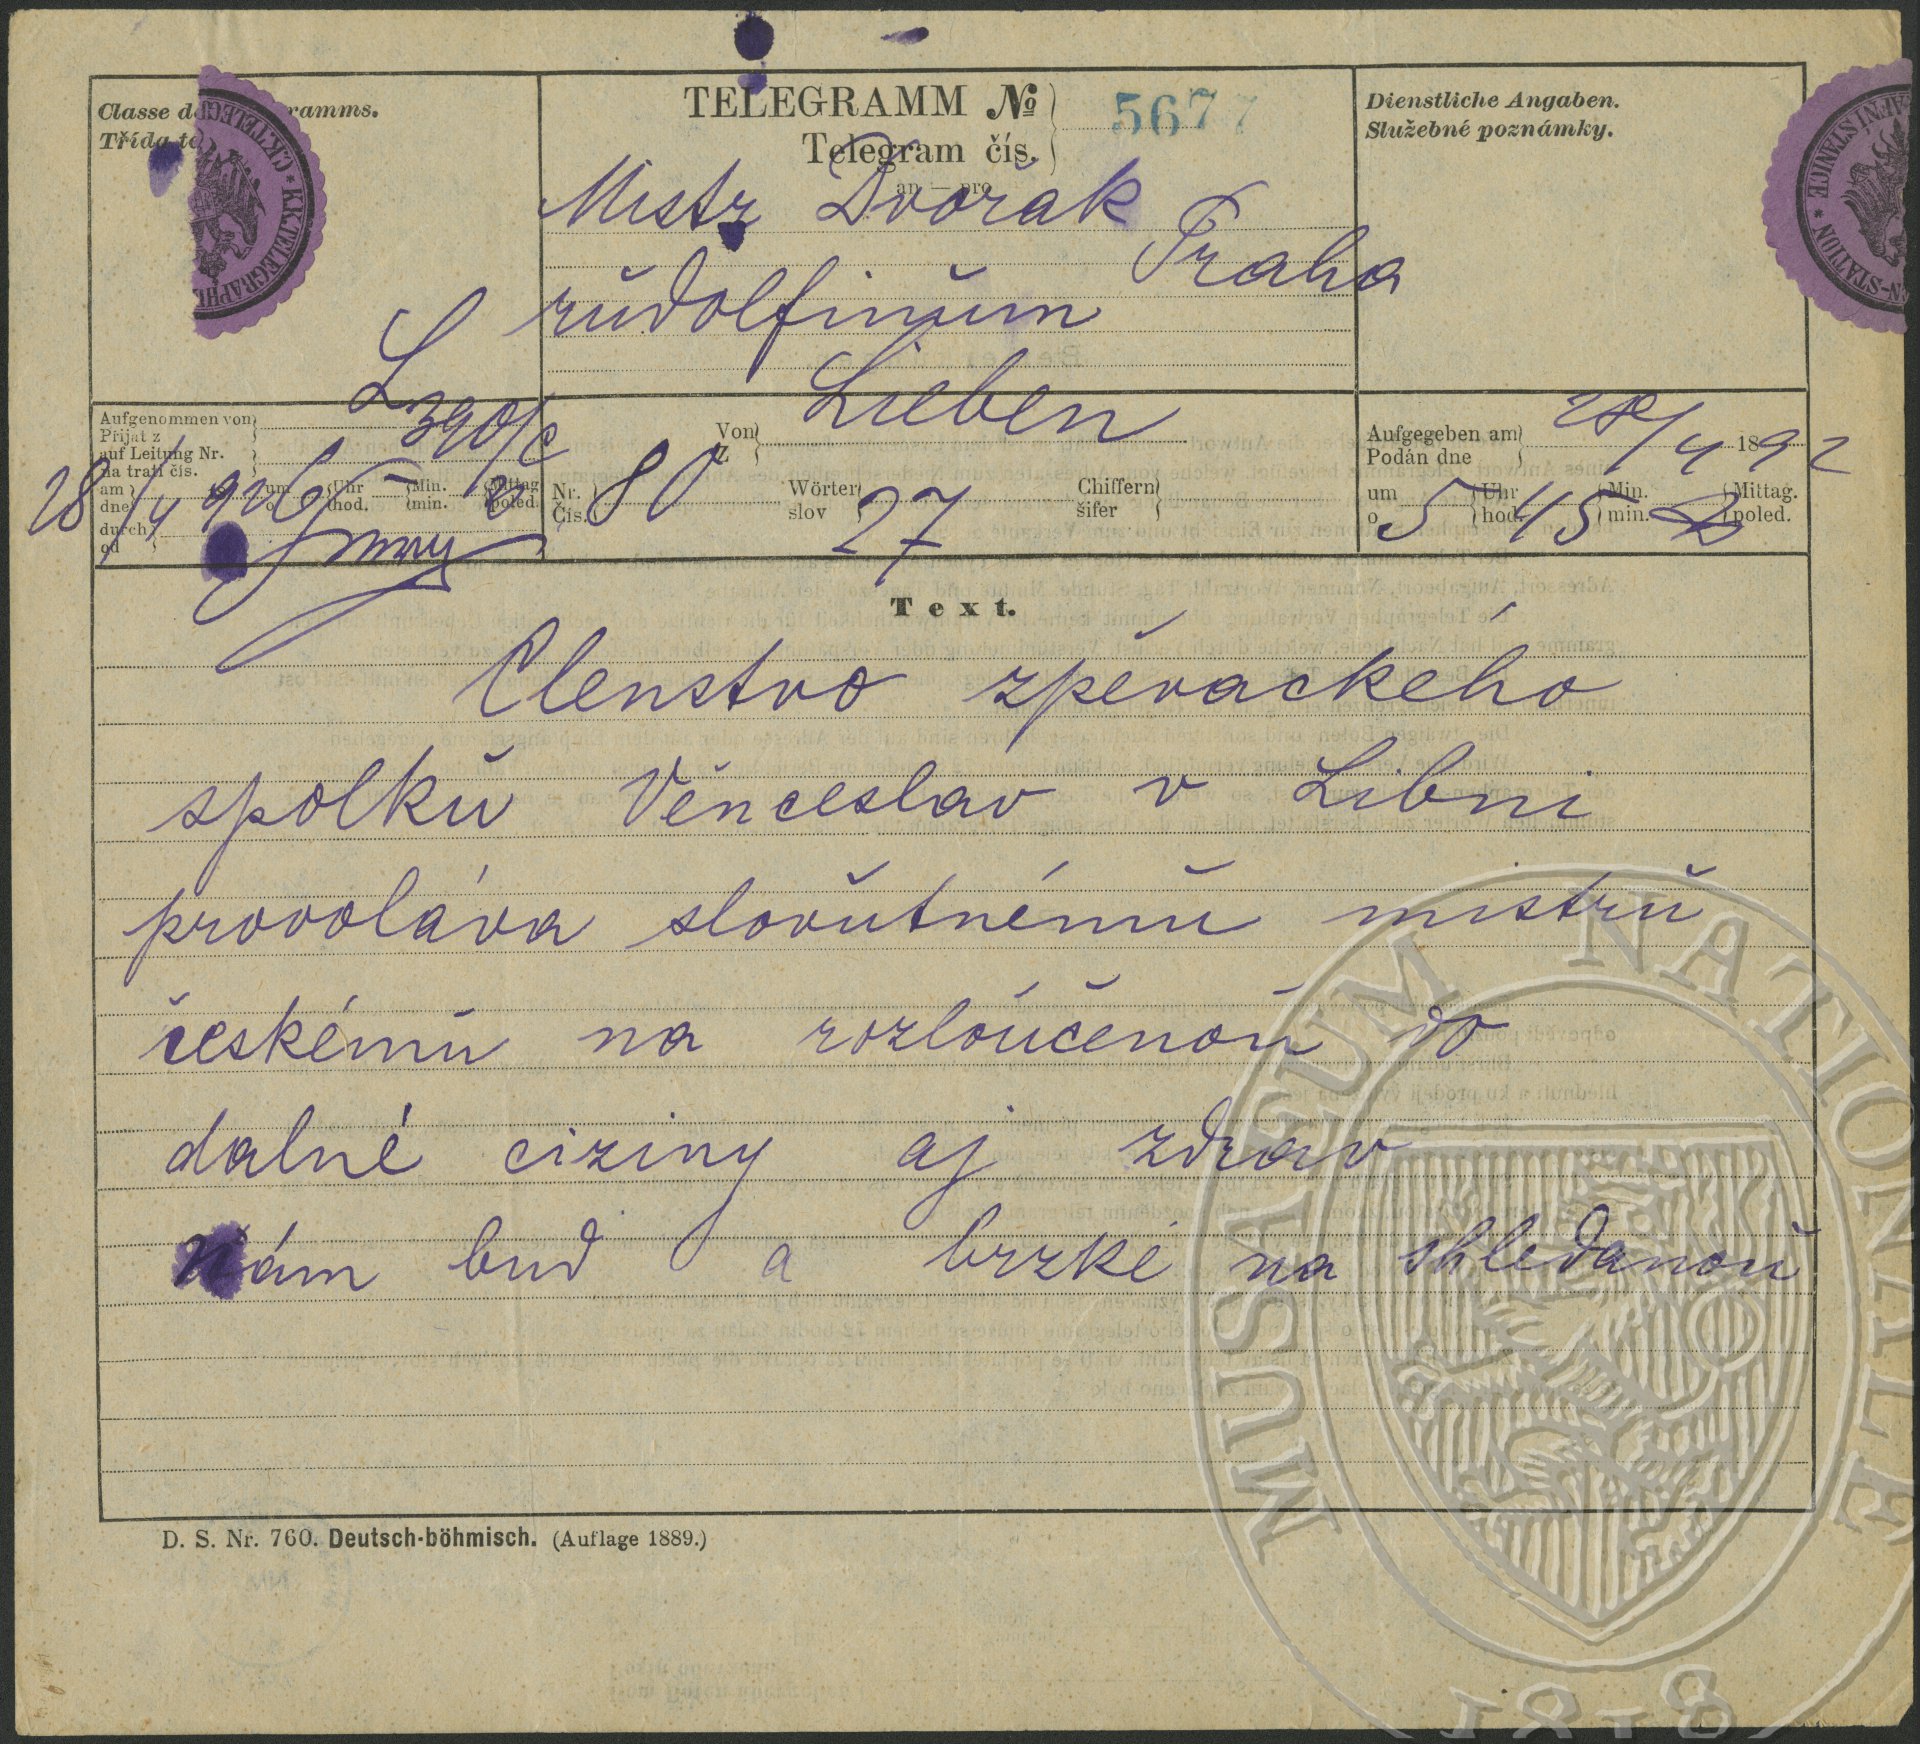 Classe d ramms.
Třída te
TELEGRAMM No
Telegram čís.
5677
an — pro
Dienstliche Angaben.
Služebné poznámky.
C.K.TELEGR * K.K.TELEGRAPHE
N-STATION * AFNÍ STANICE
Mistr Dvořak
Praha
rudolfinum
L
390/c
Aufgenommen von
Přijat z
auf Leitung Nr.
na trati čís.
am
dne
28/4 92
um
o
6
Uhr
hod.
Min.
min.
Mittag
poled.
durch
od
Von
Z
Lieben
Nr.
Čís.
80
Wörter
slov
27
Chiffern
šifer
Aufgegeben am
Podán dne
28/4 1892
um
o
5
Uhr
hod.
45
Min.
min.
Mittag.
poled.
Text.
Clenstvo zpěvackeho
spolku Věnceslav v Libni
provoláva slovutnému mistru
českému na rozloučenou do
dalné ciziny aj zdrav
Nám bud a brzké na shledanou
D. S. Nr. 760. Deutsch-böhmisch. (Auflage 1889.)
MUSAEUM NATIONALE
1818